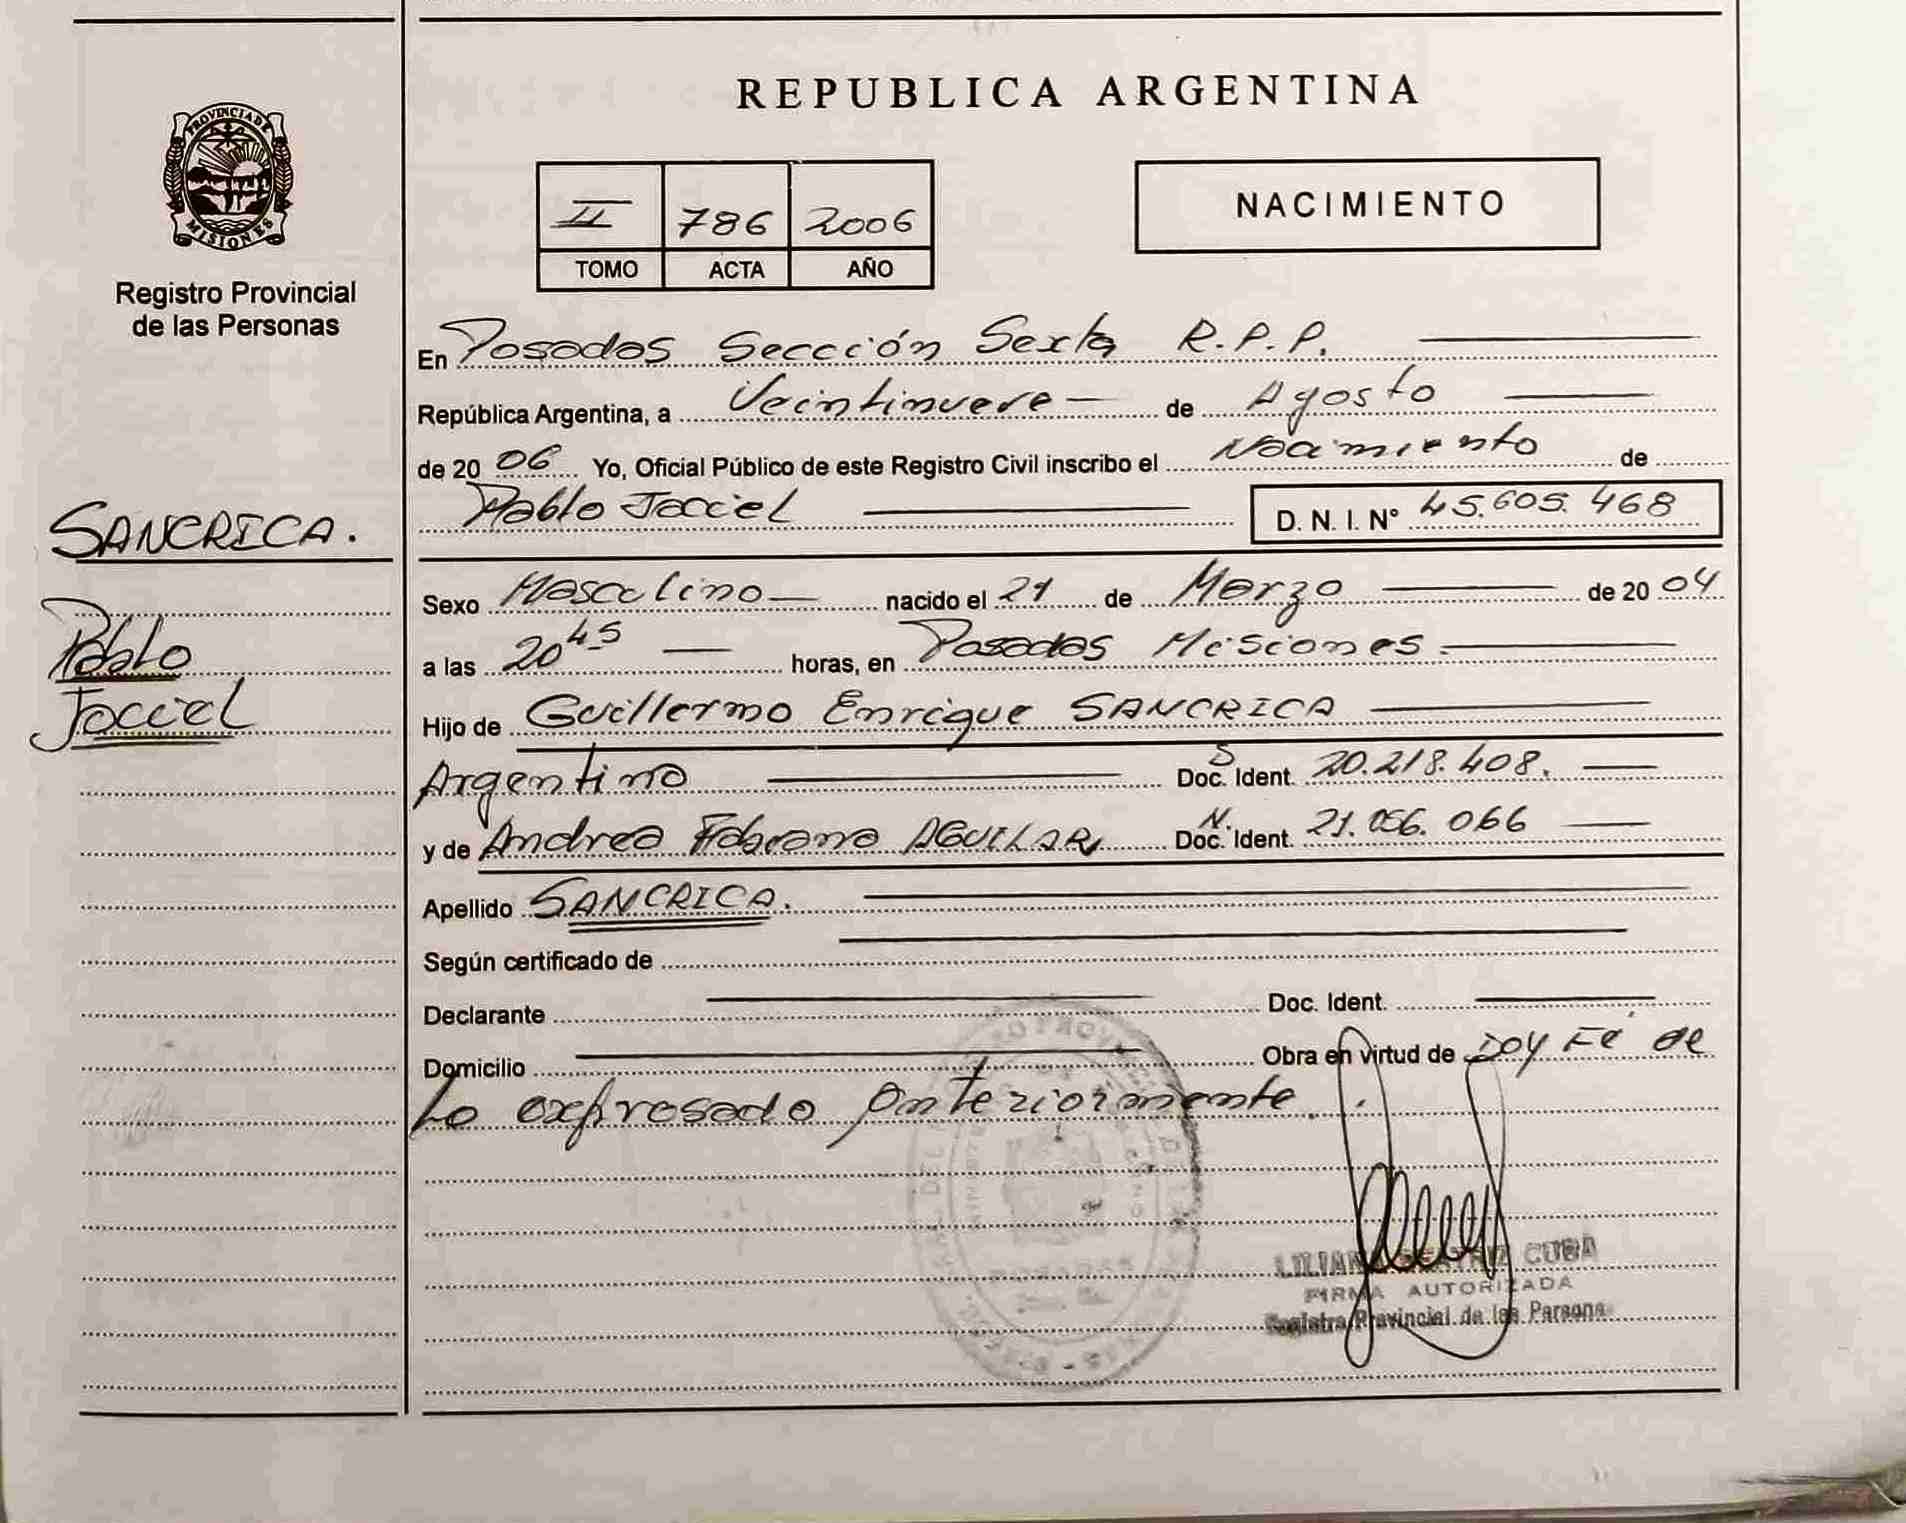 PROVINCIA DE
MISIONES
Registro Provincial
de las Personas
SANCRICA.
Pablo
Jociel
REPUBLICA ARGENTINA
II 786 2006
TOMO ACTA AÑO
NACIMIENTO
En Posadas Sección Sexta R.P.P.
República Argentina, a Veintinueve de Agosto
de 20 06 Yo, Oficial Público de este Registro Civil inscribo el Nacimiento de
Pablo Jociel D. N. I. Nº 45.605.468
Sexo Masculino nacido el 21 de Marzo de 20 04
a las 20 45 horas, en Posadas Misiones.
Hijo de Guillermo Enrique SANCRICA
Argentino Doc. Ident. 20.218.408.
y de Andrea Fabiana AGUILAR Doc. Ident. 21.056.066
Apellido SANCRICA.
Según certificado de
Declarante Doc. Ident.
Domicilio Obra en virtud de Doy Fé de
Lo expresado anteriormente.
LILIANA BEATRIZ CUBA
FIRMA AUTORIZADA
Registro Provincial de las Persona